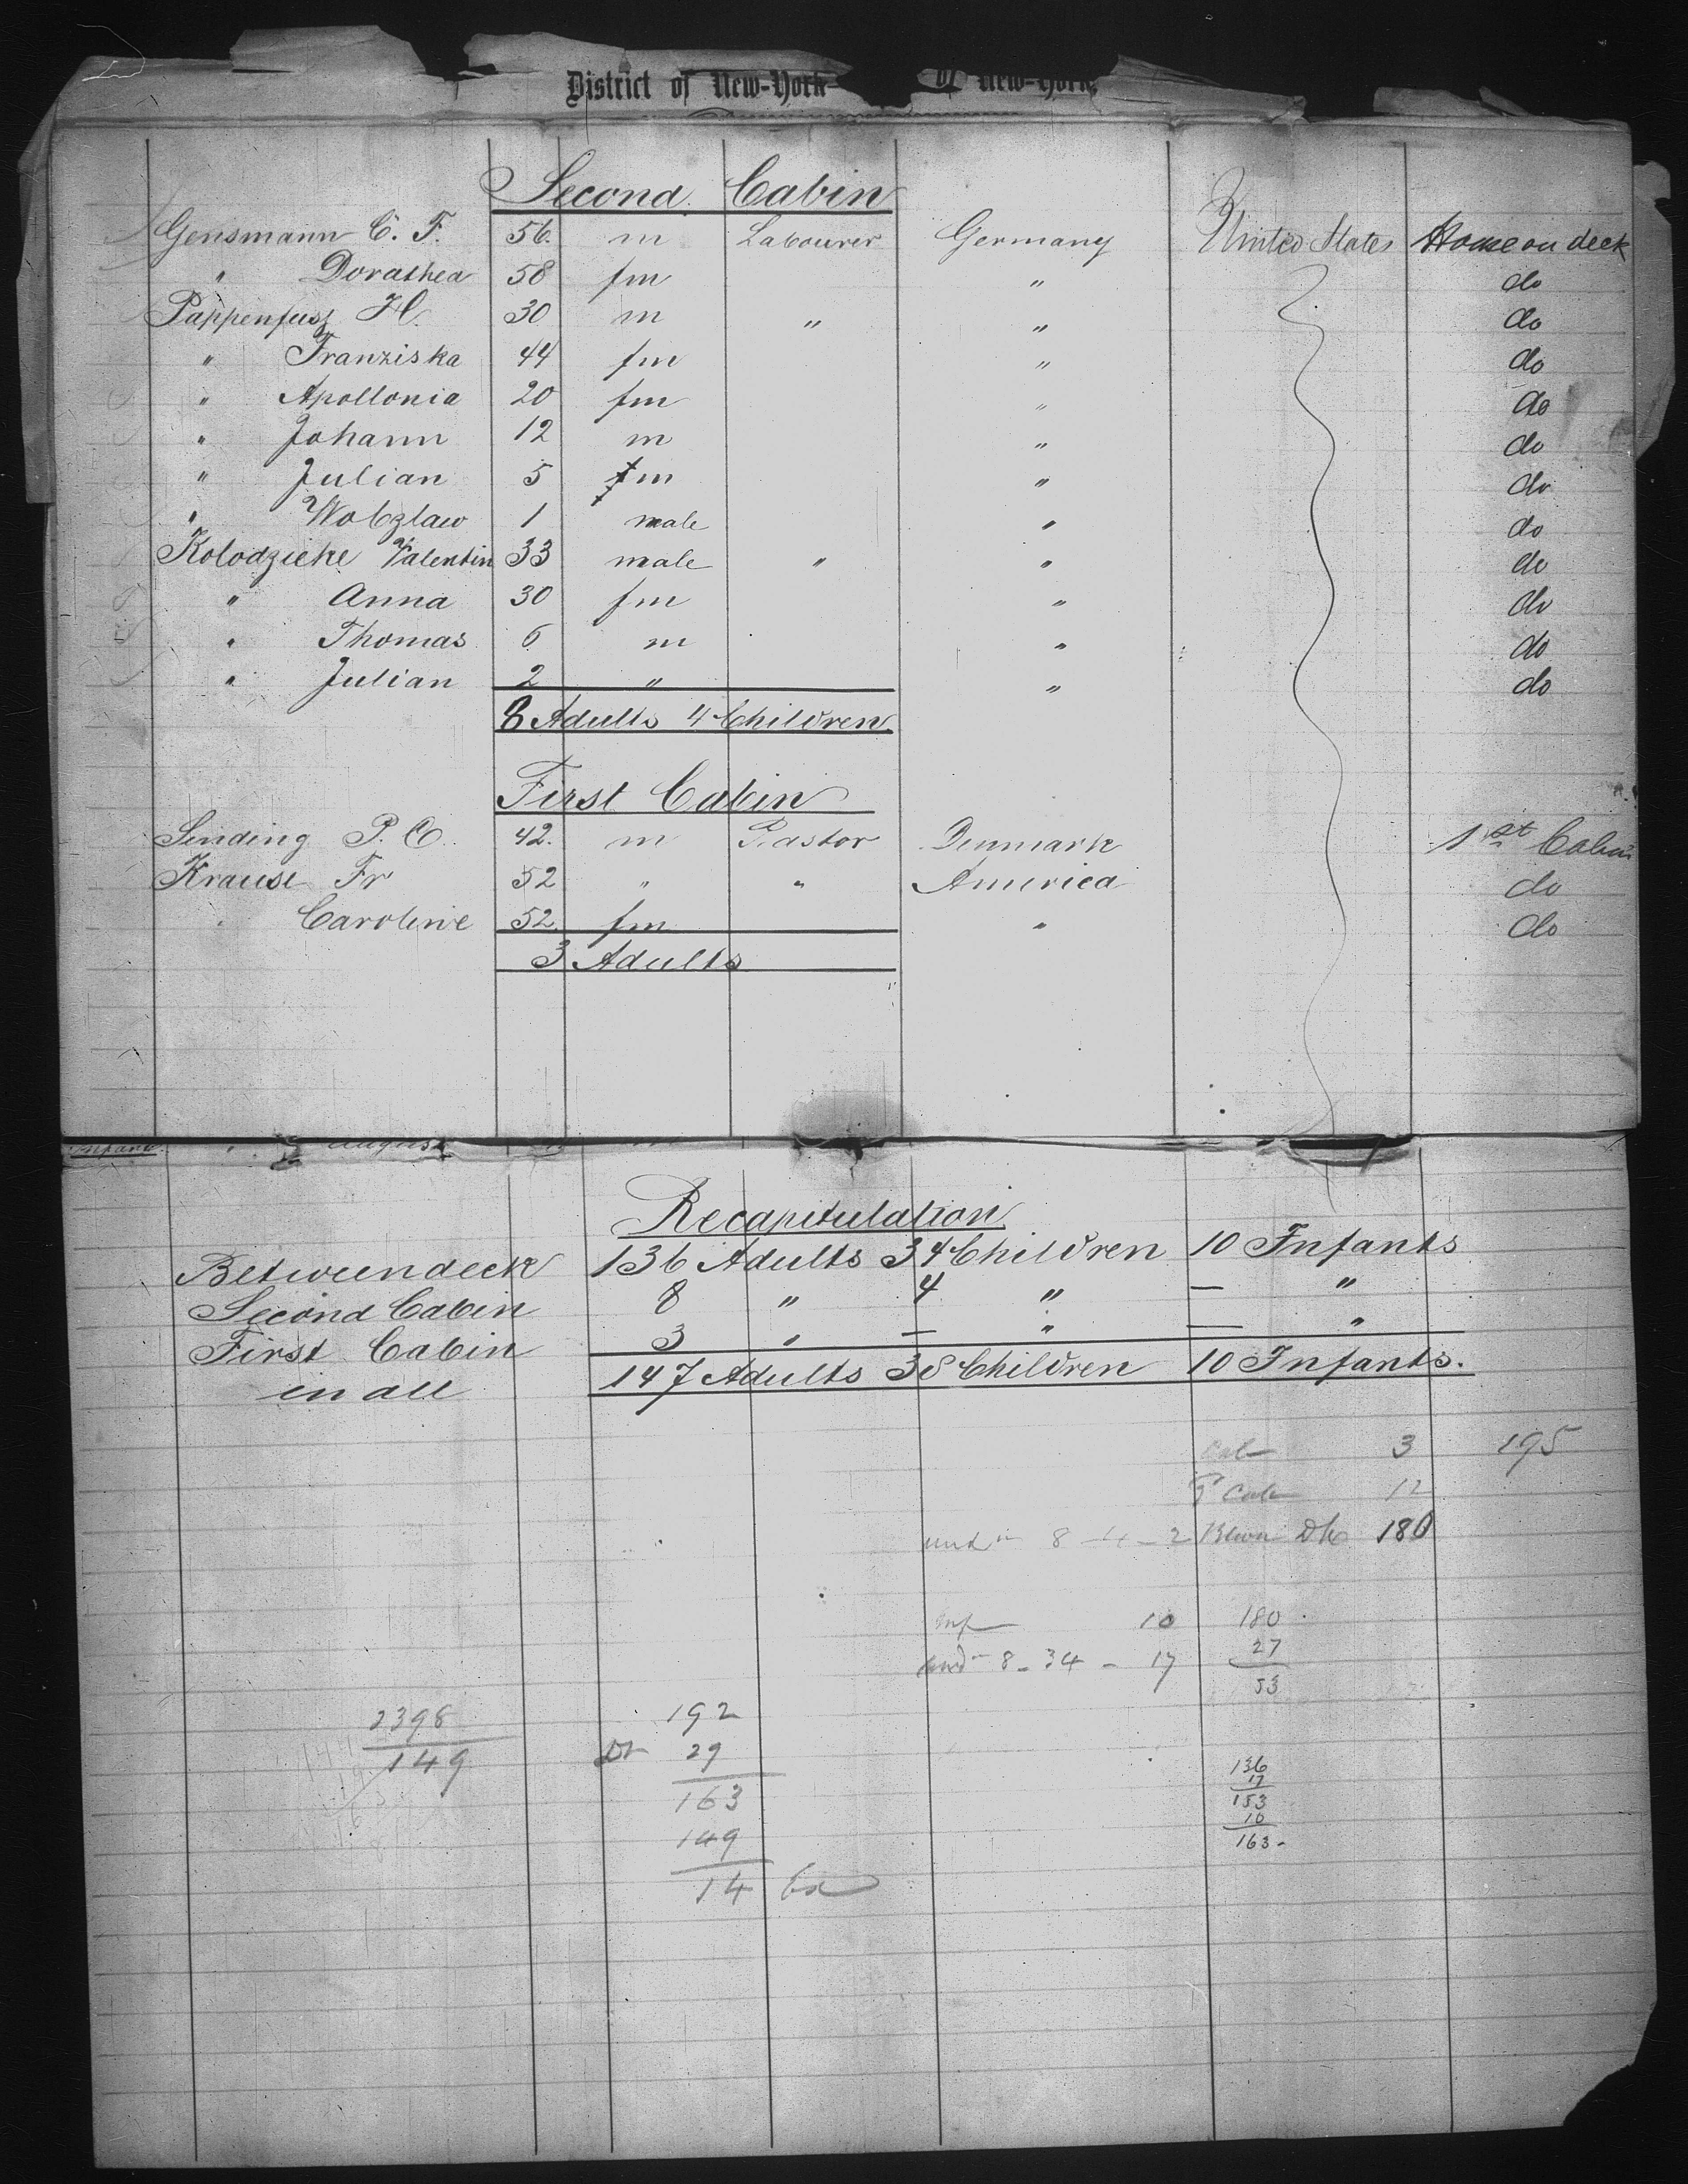 District of New-York of New-York
Second Cabin
Gensmann C. F. 56 m Labourer Germany United States House on deck
" Dorathea 58 fm " do
Pappenfusz H. 30 m " " do
" Franziska 44 fm " do
" Apollonia 20 fm " do
" Johann 12 m " do
" Julian 5 m " do
" Wobzlaw 1 male " do
Kolodzieke Valentin 33 male " " do
" Anna 30 fm " do
" Thomas 6 m " do
" Julian 2 " " do
8 Adults 4 Children
First Cabin
Sending P. C. 42. m Pastor Denmark 1st Cabin
Krause Fr 52 " " America do
" Caroline 52. fm " do
3 Adults
Infant " August
Recapitulation
Betweendeck 136 Adults 34 Children 10 Infants
Second Cabin 8 " 4 " — "
First Cabin 3 " — " — "
in all 147 Adults 38 Children 10 Infants.
Cab 3 195
Cab 12
und 8 - 4 - 2 Dk 180
Inf 10 180
und 8 - 34 - 17 27
53
2398 192
149 29
163
149
14 Ex
136
17
153
10
163-